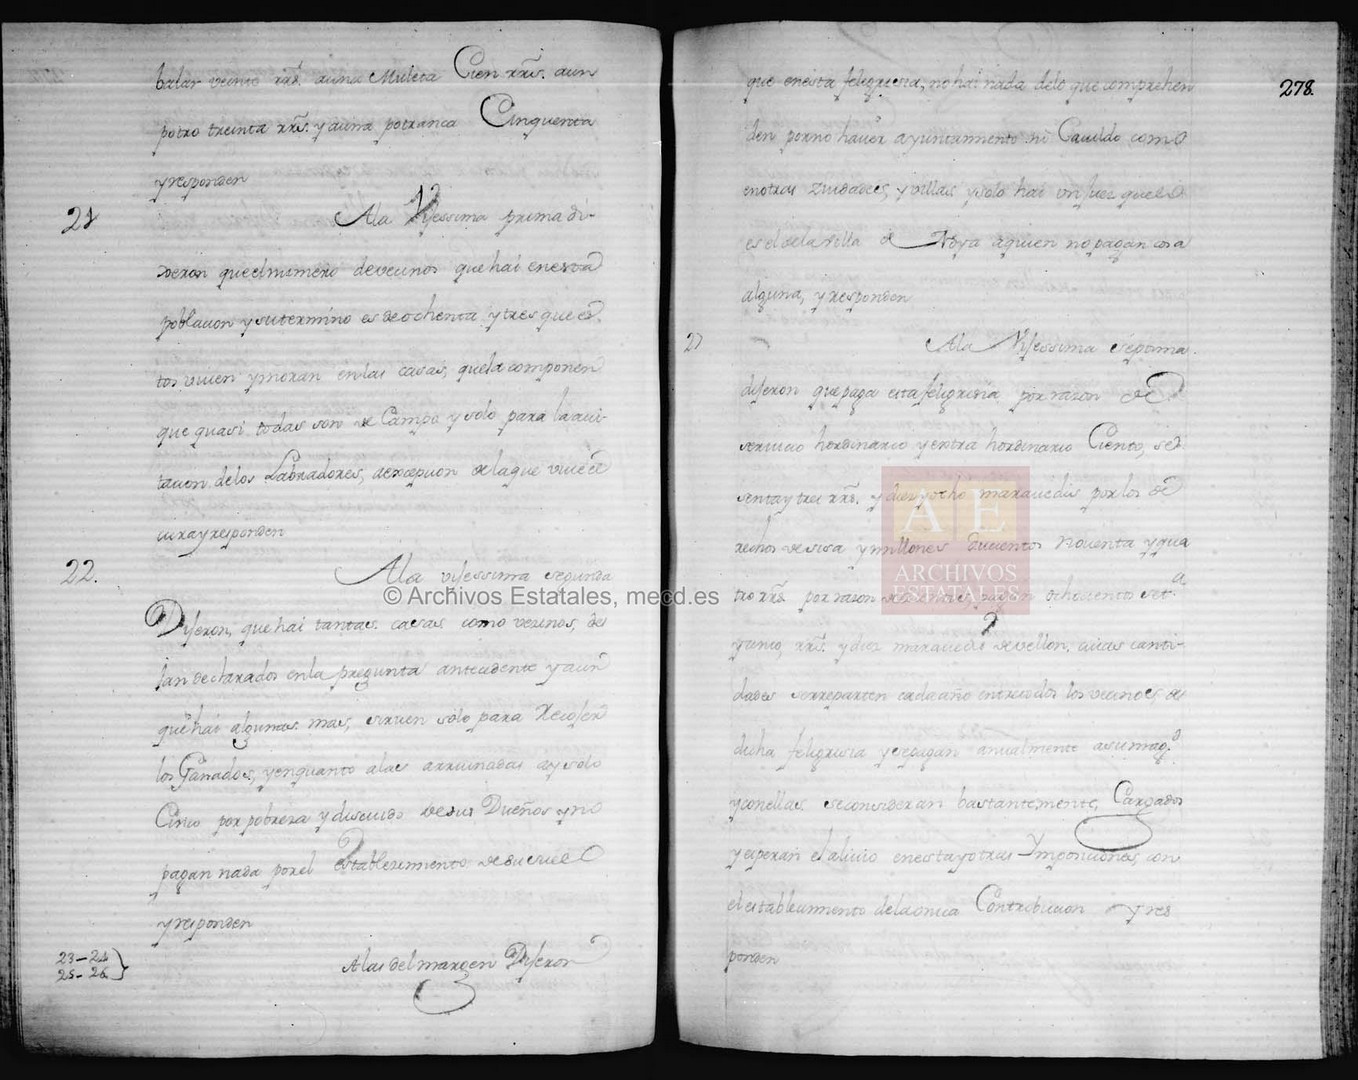 balar veinte rrs. auna Muleta Cien rrs. aun
potro treinta rrs. y auna potranca Cinquenta
y responden
21 Ala Visessima prima di-
xeron que el numero de vecinos que hai en esta
poblacion y su termino es de ochenta y tres que es-
tos viven y moran en las casas, que la componen
que quasi todas son de Campo y solo para la avi-
tacion delos Labradores, a excepcion de la que vive el
cura y responden
22. Ala visessima segunda
Dijeron, que hai tantas casas como vecinos, de
jan declarados enla pregunta antecedente y aun
que hai algunas mas, sirven solo para Recojer
los Ganados, y en quanto alas arruinadas ay solo
Cinco por pobreza y discuido de sus Dueños y no
pagan nada por el establecimento de suelo
y responden
23-24
25-26 } Alas del margen Dijeron
278.
que en esta feligresia, no hai nada delo que comprehen
den por no haver ayuntamiento ni Cavildo como
en otras Ziudades, y villas y solo hai un juez que
es el de la villa de Noya a quien no pagan cosa
alguna, y responden
27 Ala Visessima septima
dijeron que paga esta feligresia por razon de
servicio hordinario y extra hordinario Ciento, se-
senta y tres rrs. y diez y ocho maravedis por los de
rechos de sisa y millones Ducientos Noventa y qua
tro rrs. por razon de pagan ochociento set.ª
y cinco, rrs. y diez maravedis de vellon. cuias canti-
dades se rreparten cada año entre todos los vecinos, de
dicha feligresia y se pagan anualmente a su mag.d
y con ellas se consideran bastantemente, Cargados
y esperan el alivio en esta y otras Ymposiciones con
el establecimento de la unica Contribucion y res
ponden
© Archivos Estatales, mecd.es
AE
ARCHIVOS
ESTATALES